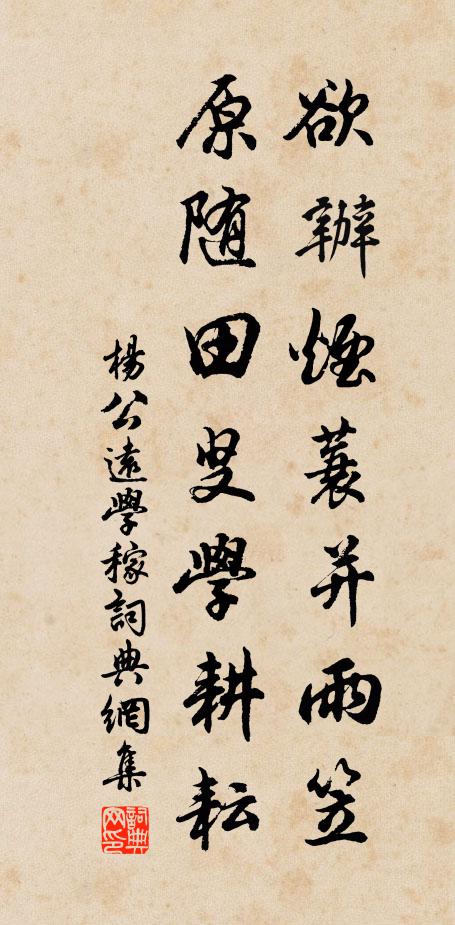 欲辦煙蓑并雨笠
原随田叟學耕耘
楊公遠學稼詞典網集
詞典网印